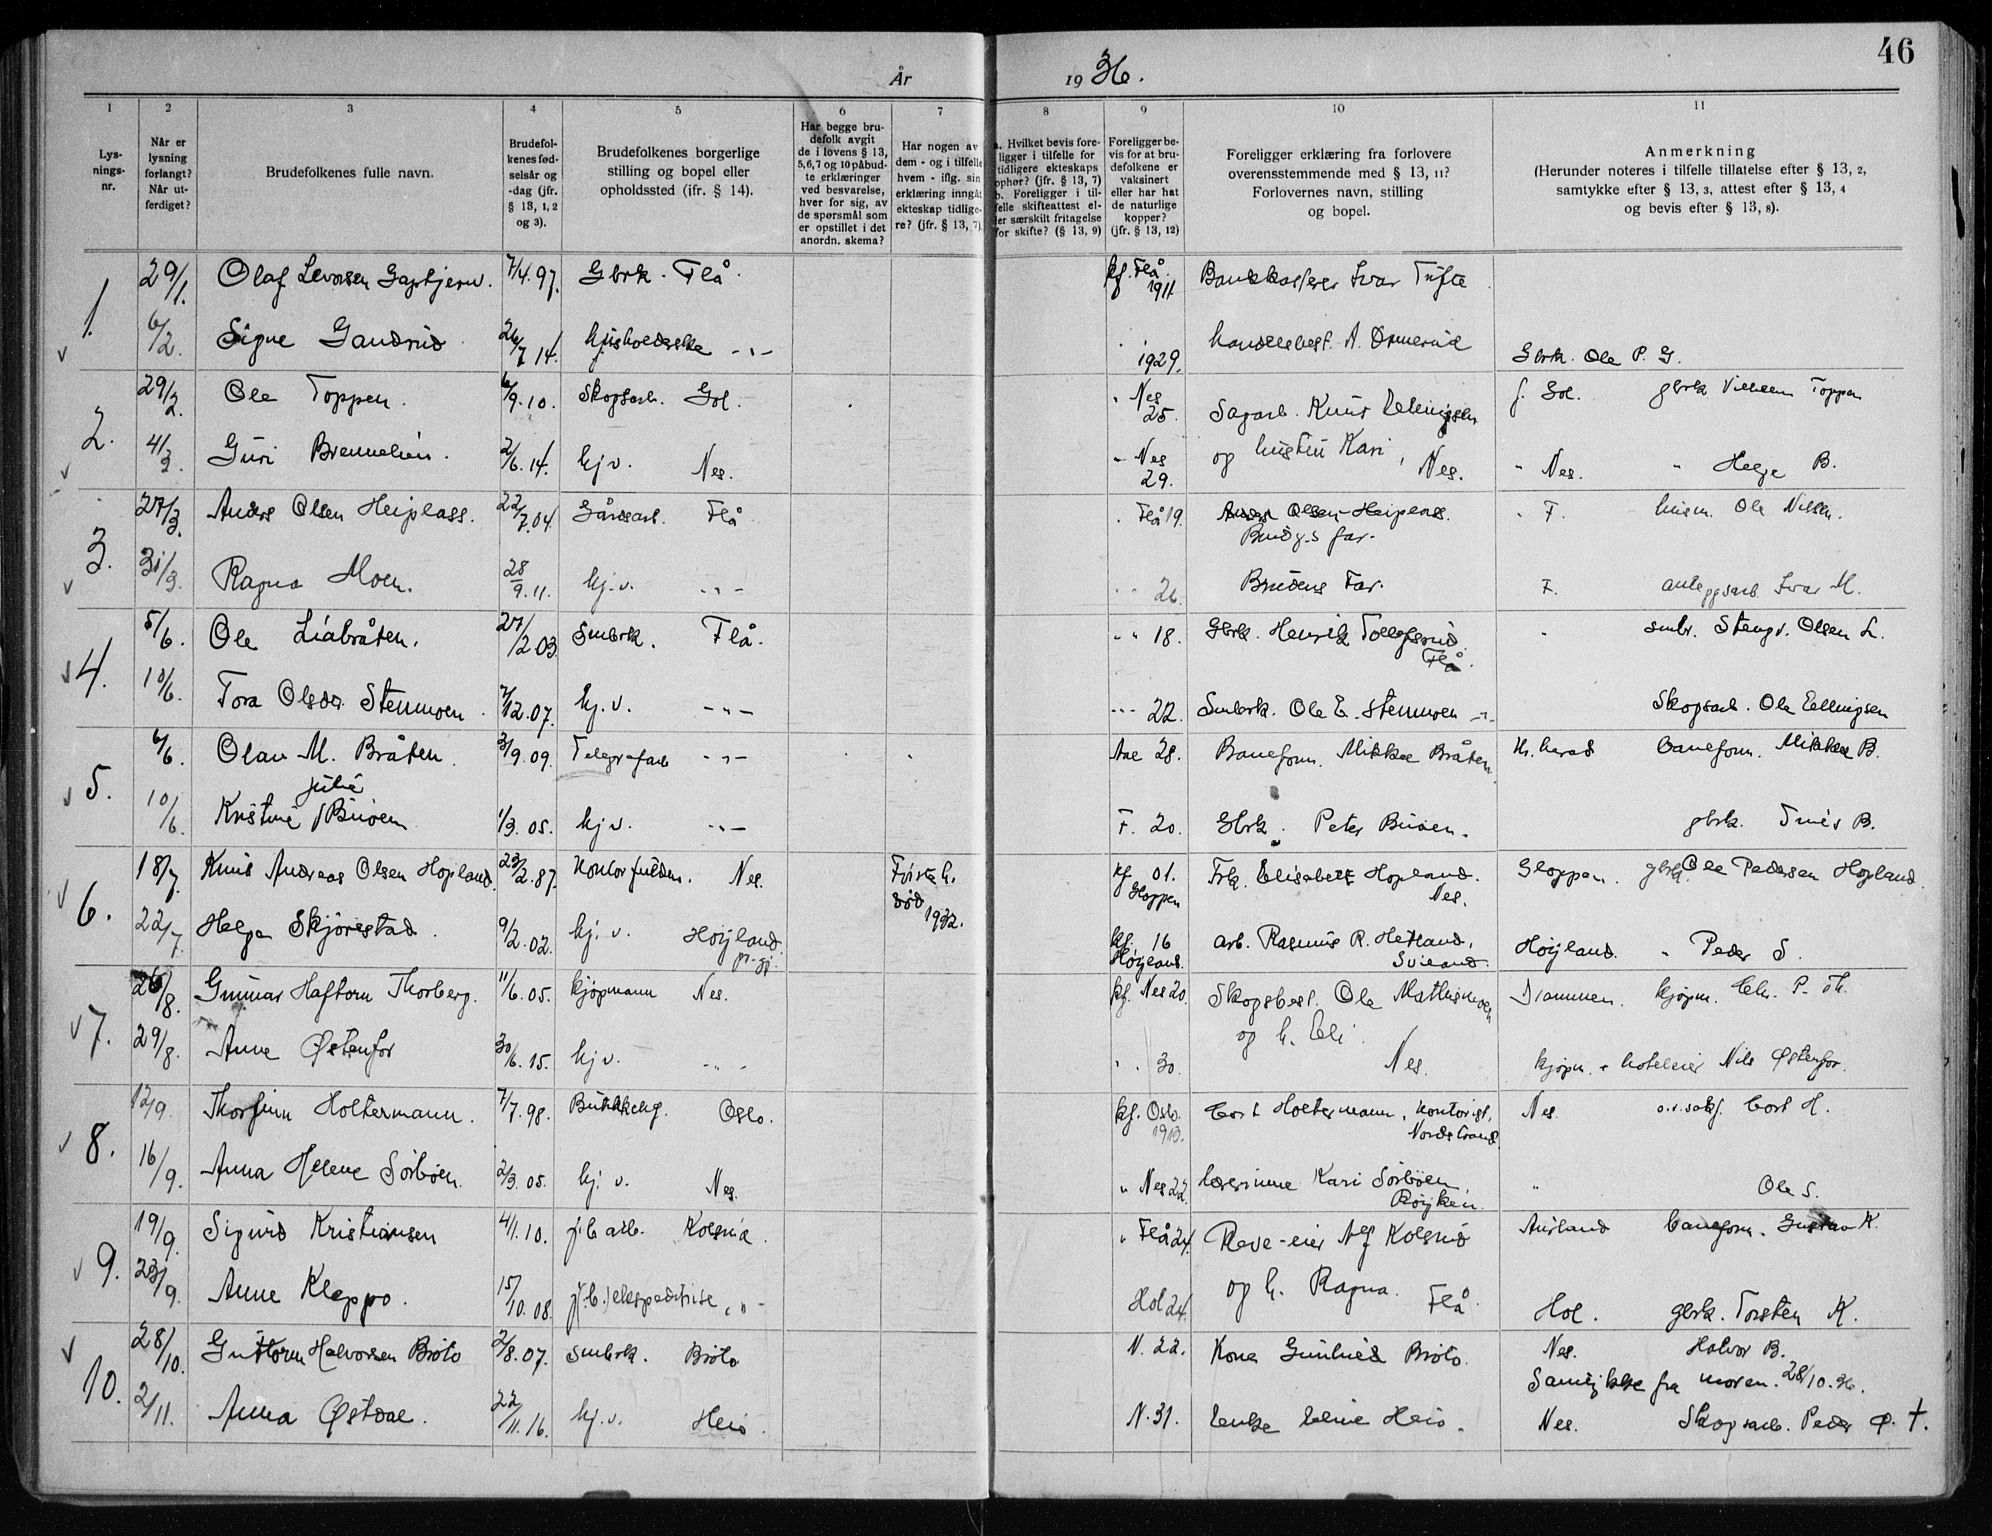 46
År 1936.
1 2 3 4 5 6 7 8 9 10 11
Lys-
nings-
nr.
Når er
lysning
forlangt?
Når ut-
ferdiget?
Brudefolkenes fulle navn.
Brudefol-
kenes fød-
selsår og
-dag (jfr.
§ 13, 1, 2
og 3).
Brudefolkenes borgerlige
stilling og bopel eller
opholdssted (ifr. § 14).
Har begge bru-
defolk avgit
de i lovens § 13,
5,6,7 og 10 påbud-
te erklæringer
ved besvarelse,
hver for sig, av
de spørsmål som
er opstillet i det
anordn. skema?
Har nogen av
dem - og i tilfelle
hvem - iflg. sin
erklæring inngåt
ekteskap tidlige-
re? (jfr. § 13, 7)
a. Hvilket bevis fore-
ligger i tilfelle for
tidligere ekteskaps
ophør? (jfr. § 13, 7)
b. Foreligger i til-
felle skifteattest el-
ler særskilt fritagelse
for skifte? (§ 13, 9)
Foreligger be-
vis for at bru-
defolkene er
vaksinert
eller har hat
de naturlige
kopper?
(jfr. § 13, 12)
Foreligger erklæring fra forlovere
overensstemmende med § 13, 11?
Forlovernes navn, stilling
og bopel.
Anmerkning
(Herunder noteres i tilfelle tillatelse efter § 13, 2,
samtykke efter § 13, 3, attest efter § 13, 4
og bevis efter § 13, 8).
1. 29/1. Olaf Levorsen 7/4.97. Gbrk. Flå. kf. Flå. 1911 Bankkasserer Ivar Tufte
6/2. Signe Gandrud 26/7 14. husholderske -"- 1929. handelsbest. A. Ormerud Gbrk. Ole P. G.
2. 29/2. Ole Toppen. 6/9.10. Skogsarb. Gol. " Nes 25. Sagarb. Knut Ellingsen f. Gol. gbrk Villum Toppen
4/3 Guri Brennelien. 2/6.14. hj.v. Nes. " Nes 29. og hustru Kari, Nes. " Nes. " Helge B.
3. 27/3. Anders Olsen Heiplass. 22/7.04. Gårdsarb. Flå . Flå 19. Anders Olsen Heiplass. Brudg.s far. " F. husm. Ole Nilsen.
31/3. Ragna Moen. 28/9.11. hj.v. -"- " 26. Brudens Far. F. anleggsarb Ivar M.
4. 5/6. Ole Liabråten. 27/2 03. Smbrk. Flå. -" 18. Gbrk. Henrik Tollefsrud Flå. " smbr. Stengr. Olsen L.
10/6. Tora Olsdr. Stenmoen. 7/12.07. hj.v. -"- -"- 22. Smbrk. Ole E. Stenmoen -"- Skogsarb. Ole Ellingsen
5. 6/6. Olav M. Bråten. 3/9.09. Telegrafarb -"- Aal 28. Baneform. Mikkel Bråten. baneform. Mikkel B.
10/6. Kristine Julie Buøen 1/3.05. hj v. -"- F. 20. Gbrk. Peter Buøen. gbrk. B.
6. 18/7. Knut Andreas Olsen Hopland. 23/2.87. Kontorfuldm. Nes. Første h. død 1932. kf 01. Gloppen Frk. Elisabeth Hopland. Nes. Gloppen. gbrk. Ole Pedersen Hopland.
22/7. Helga Skjørestad. 9/2.02. hj. v. Høyland pr.gj. kf. 16 Høyland. arb. Rasmus R. Hetland, Høyland. " Peder S.
7. 26/8. Gunnar Haftorn Thorberg. 11/6.05. kjøpmann Nes. kf. Nes 20. Skogsbest. Ole Mathismoen Drammen. kjøpm. Chr. P. Th.
29/8. Anne Østenfor 30/6.15. hj v. -"- " . 30. og h. Eli. Nes. kjøpm. + hoteleier Nils Østenfor.
8. 12/9. Thorfinn Holtermann. 7/7.98. Oslo. kf. Oslo. 1913. Cort Holtermann, kontorist, Nordstrand Nes. o.r.sakf. Cort H.
16/9. Anna Helene Sørbøen. 2/3.05. hj. v. Nes. " Nes 22. lærerinne Kari Sørbøen, Røyken. " Ole S.
9. 19/9. Sigurd Kristiansen 4/1.10. j.b. arb. Kolsrud. " Flå 24. Reve-eier Alf Kolsrud Aurland baneform. Gustav K.
23/9. Anne Kleppo. 15/10.08. j(.b.)ekspeditrise, " - Hol 24. og h. Ragna. Flå. Hol. gbrk. Torsten K.
10. 28/10. Guttorm Halvorsen Brøto 2/8.07. smbrk. Brøto N. 22. Kone Gunhild Brøto. Nes. Halvor B.
Samtykke fra moren. 28/10.36.
2/11. Anna Østdal. 22/11.16. hj.v. Heio N. 31. Enke Eline Heio. Nes. Skogsarb. Peder Ø. †.